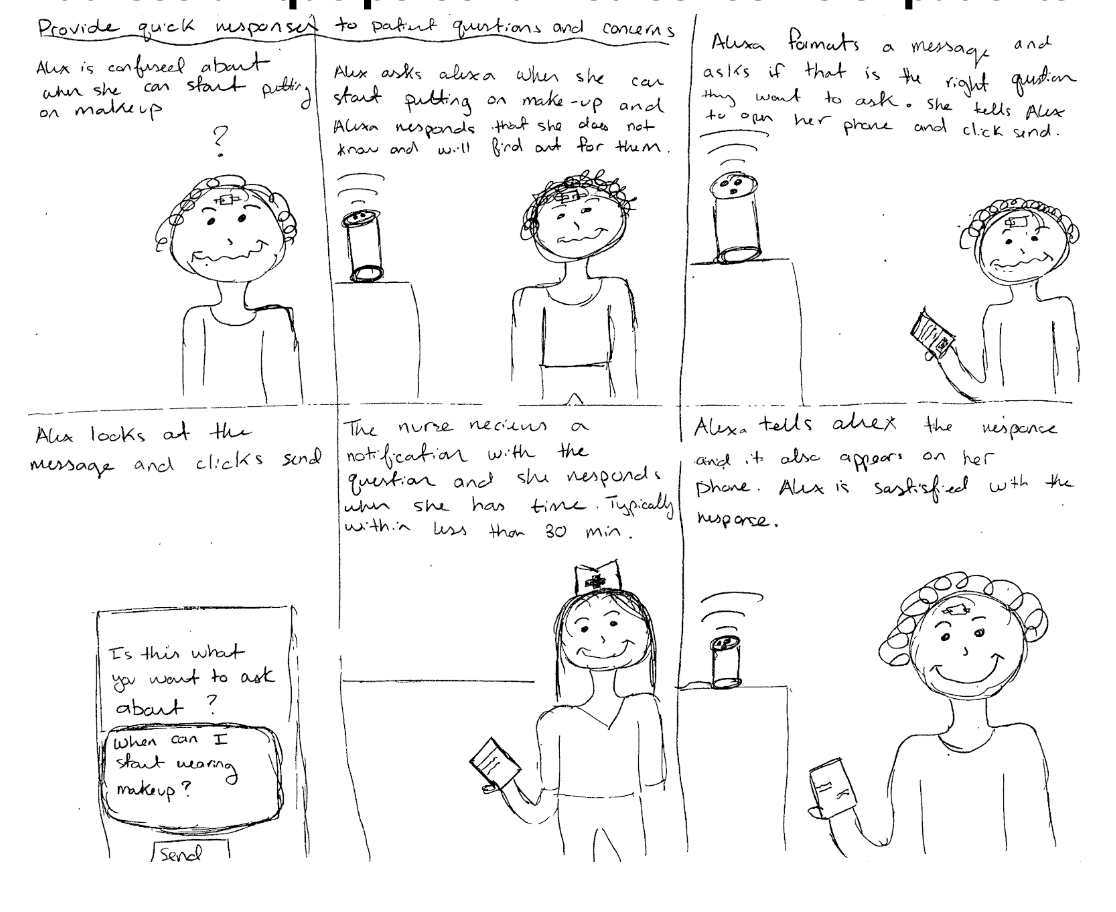 Provide quick responses to patient questions and concerns
Alex is confused about
when she can start putting
on makeup
?
Alex asks alexa when she can
start putting on make-up and
Alexa responds that she does not
know and will find out for them.
Alexa formats a message and
asks if that is the right question
they want to ask. She tells Alex
to open her phone and click send.
Alex looks at the
message and clicks send
Is this what
you want to ask
about ?
When can I
start wearing
makeup?
Send
The nurse recieves a
notification with the
question and she responds
when she has time. Typically
within less than 30 min.
Alexa tells alex the response
and it also appears on her
phone. Alex is sastisfied with the
response.